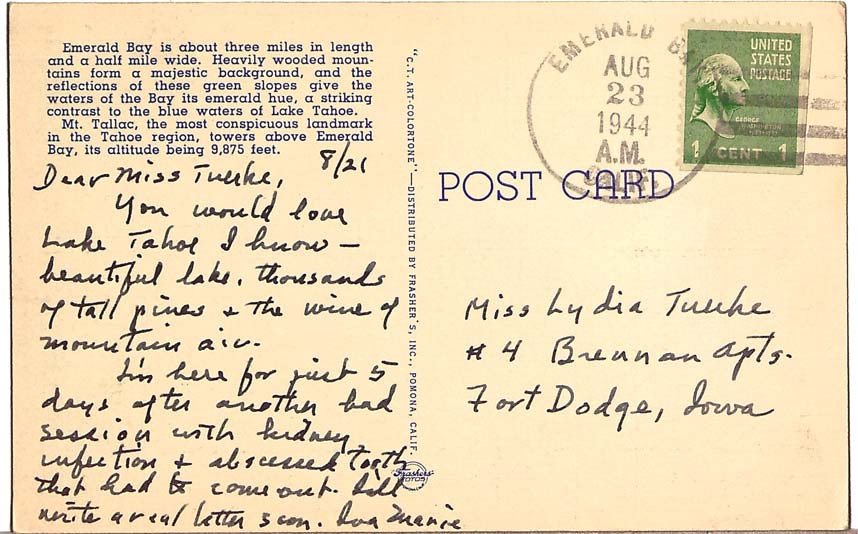 Emerald Bay is about three miles in length
and a half mile wide. Heavily wooded moun-
tains form a majestic background, and the
reflections of these green slopes give the
waters of the Bay its emerald hue, a striking
contrast to the blue waters of Lake Tahoe.
Mt. Tallac, the most conspicuous landmark
in the Tahoe region, towers above Emerald
Bay, its altitude being 9,875 feet.
8/21
Dear Miss Tuerke,
You would love
Lake Tahoe I know –
beautiful lake, thousands
of tall pines + the wine of
mountain air.
I'm here for just 5
days after another bad
session with kidney
infection + abscessed tooth
that had to come out. Will
write a real letter soon. Iva Marie
"C.T. ART-COLORTONE"—DISTRIBUTED BY FRASHER'S, INC., POMONA, CALIF.
Frashers
FOTOS
POST CARD
EMERALD BAY
AUG
23
1944
A.M.
CALIF.
UNITED
STATES
POSTAGE
GEORGE
WASHINGTON
1 CENT 1
Miss Lydia Tuerke
# 4 Brennan Apts.
Fort Dodge, Iowa